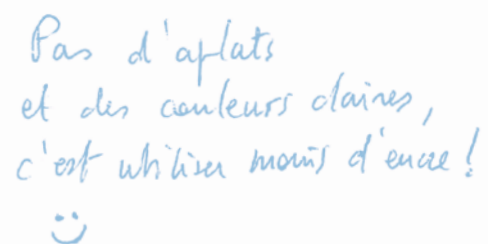 Pas d'aplats
et des couleurs claires,
c'est utiliser moins d'encre !